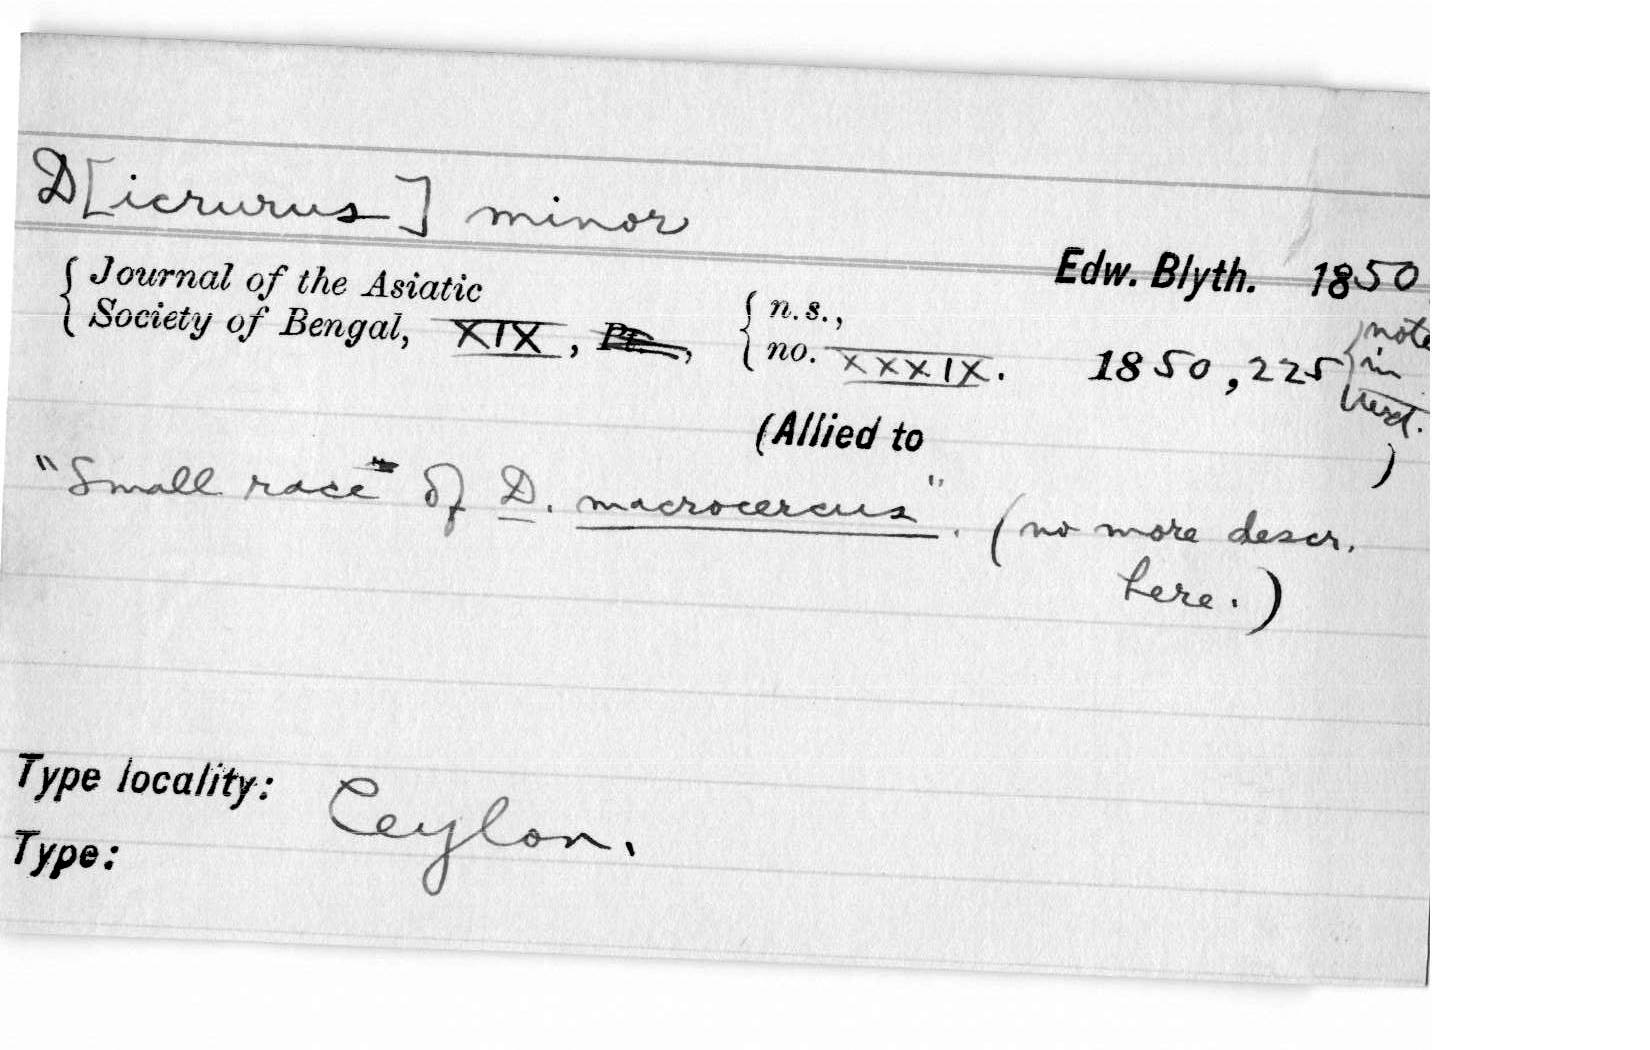 D[icrurus] minor
Edw. Blyth. 1850
Journal of the Asiatic
Society of Bengal, XIX, Pt., { n.s., no. XXXIX. 1850, 225 { note in text.
(Allied to )
"Small race of D. macrocercus". (no more descr.
here.)
Type locality: Ceylon.
Type: